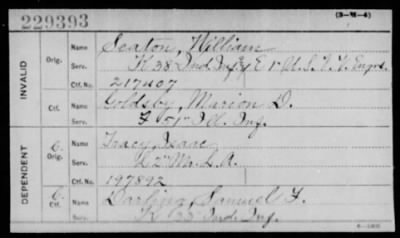 (3-W-4)
229393
INVALID
Orig.
Name Seaton, William
Serv. K 38 Ind. Inf, & E 1" U.S. V. V. Engrs.
Ctf. No. 217407
Ctf.
Name Goldsby, Marion D.
Serv. F 51" Ill. Inf.
DEPENDENT
C.
Orig.
Name Tracy, Isaac
Serv. 2" L.A.
Ctf. No. 197892
C.
Ctf.
Name Samuel F.
Serv. K 33 Ind. Inf.